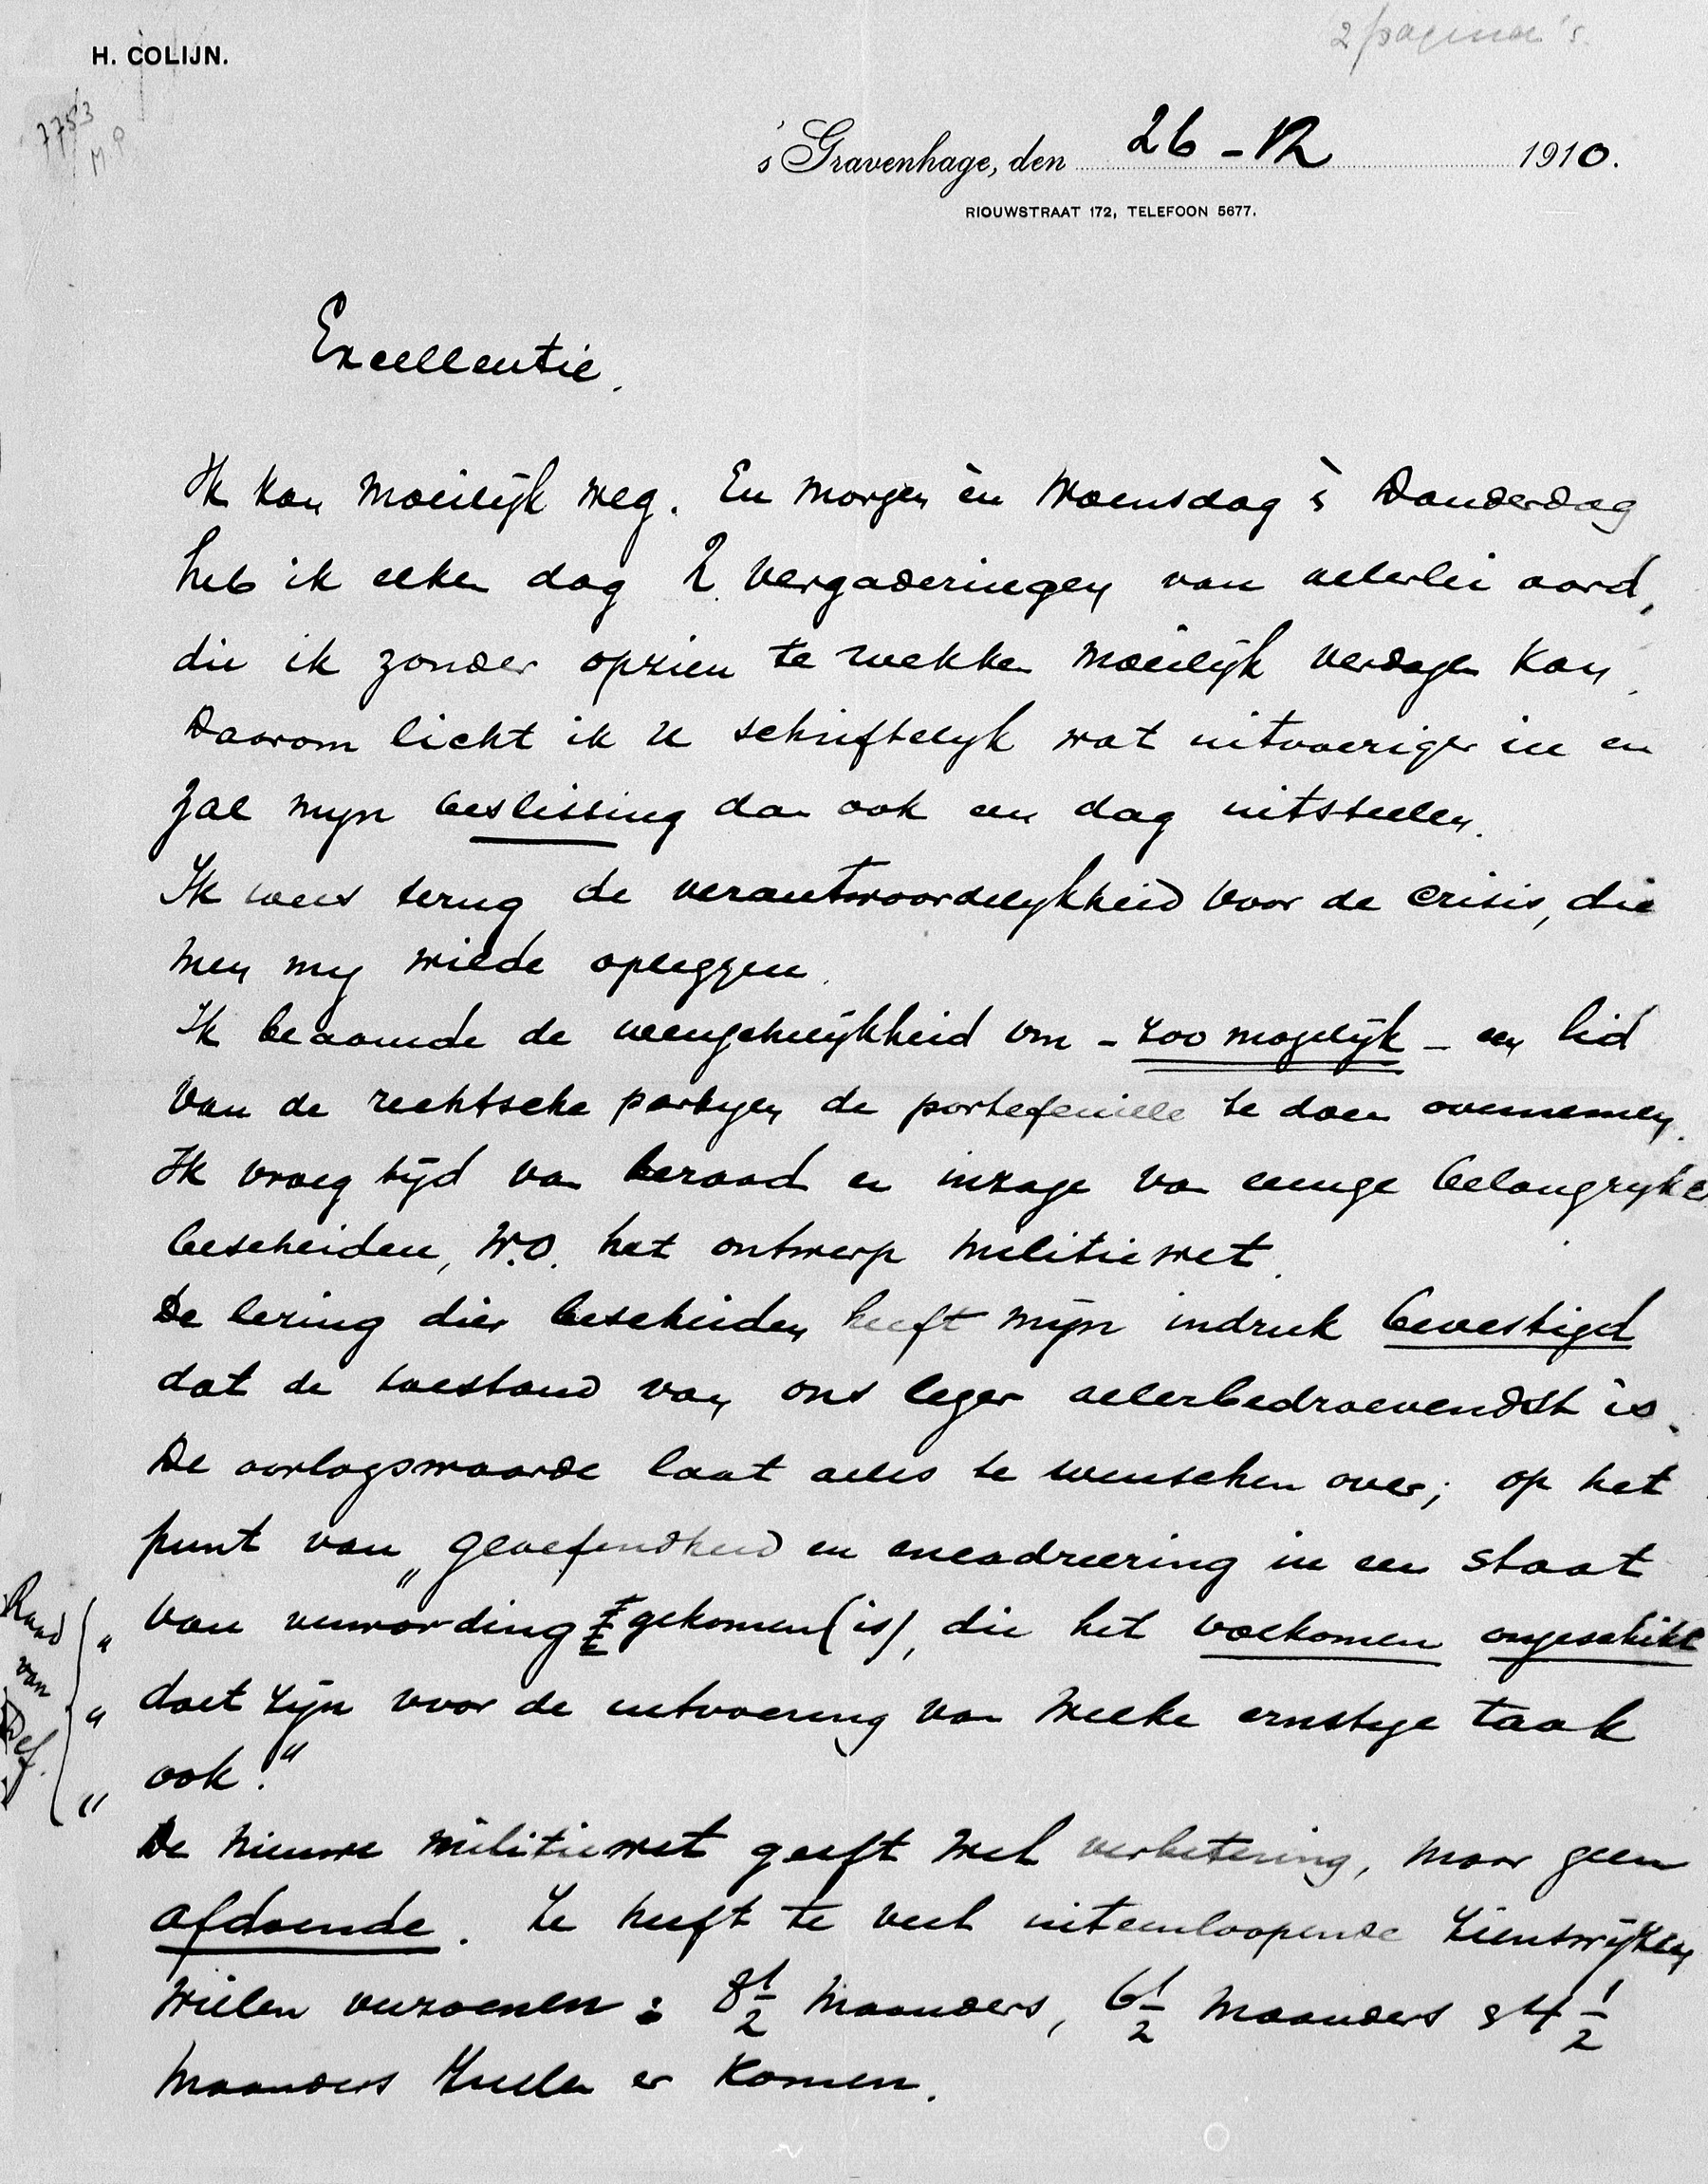 2 pagina's.
H. COLIJN.
7753
M.P
's Gravenhage, den 26-12 1910.
RIOUWSTRAAT 172, TELEFOON 5677.
Excellentie.
Ik kan moeilijk weg. En morgen èn Woensdag & Donderdag
heb ik elken dag 2 vergaderingen van allerlei aard,
die ik zonder opzien te wekken moeilijk verdagen kan.
Daarom licht ik U schriftelijk wat uitvoeriger in en
zal mijn beslissing dan ook een dag uitstellen.
Ik wees terug de verantwoordelijkheid voor de crisis, die
men mij wilde opleggen.
Ik beaamde de wenschelijkheid om - zoo mogelijk - een lid
van de rechtsche partijen de portefeuille te doen overnemen.
Ik vroeg tijd van beraad en inzage van eenige belangrijke
bescheiden, w.o. het ontwerp militiewet.
De lezing dier bescheiden heeft mijn indruk bevestigd
dat de toestand van ons leger allerbedroevendst is.
De oorlogswaarde laat alles te wenschen over; op het
punt van „geoefendheid en encadreering in een staat
Raad van Def. " van verwording gekomen (is), die het volkomen ongeschikt
" doet zijn voor de uitvoering van welke ernstige taak
" ook."
De nieuwe militiewet geeft wel verbetering, maar geen
afdoende. Ze heeft te veel uiteenloopende zienswijzen
willen verzoenen: 8½ maanders, 6½ maanders & 4½
maanders zullen er komen.